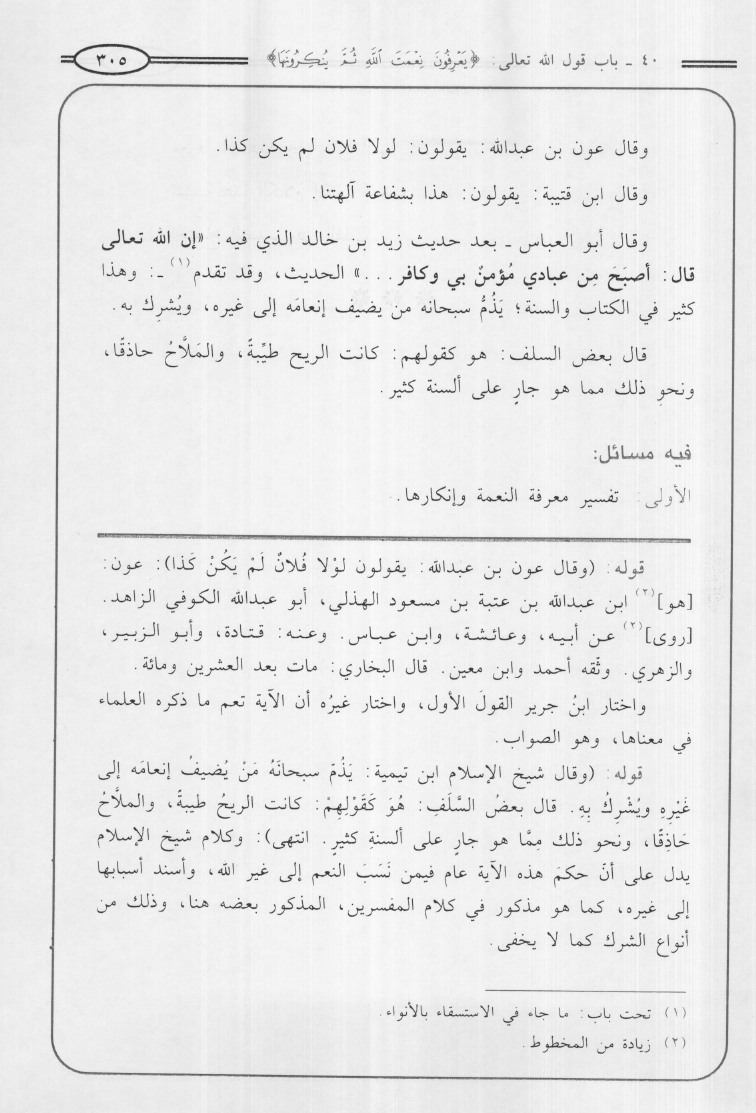 ٤٠ ـ باب قول الله تعالى: ﴿يَعْرِفُونَ نِعْمَتَ ٱللَّهِ ثُمَّ يُنكِرُونَهَا﴾ ٣٠٥
وقال عون بن عبدالله: يقولون: لولا فلان لم يكن كذا.
وقال ابن قتيبة: يقولون: هذا بشفاعة آلهتنا.
وقال أبو العباس ـ بعد حديث زيد بن خالد الذي فيه: «إن الله تعالى
قال: أصبَحَ مِن عبادي مُؤمنٌ بي وكافر . . .» الحديث، وقد تقدم(١) ـ: وهذا
كثير في الكتاب والسنة؛ يَذُمُّ سبحانه من يضيف إنعامَه إلى غيره، ويُشرِك به.
قال بعض السلف: هو كقولهم: كانت الريح طيِّبةً، والمَلَّاحُ حاذقًا،
ونحوِ ذلك مما هو جارٍ على ألسنة كثير.
فيه مسائل:
الأولى: تفسير معرفة النعمة وإنكارها.
قوله: (وقال عون بن عبدالله: يقولون لوْلا فُلانٌ لَمْ يَكُنْ كَذا): عون:
[هو](٢) ابن عبدالله بن عتبة بن مسعود الهذلي، أبو عبدالله الكوفي الزاهد.
[روى](٢) عن أبيه، وعائشة، وابن عباس. وعنه: قتادة، وأبو الزبير،
والزهري. وثَّقه أحمد وابن معين. قال البخاري: مات بعد العشرين ومائة.
واختار ابنُ جرير القولَ الأول، واختار غيرُه أن الآية تعم ما ذكره العلماء
في معناها، وهو الصواب.
قوله: (وقال شيخ الإسلام ابن تيمية: يَذُمّ سبحانَهُ مَنْ يُضيفُ إنعامَه إلى
غَيْرِهِ ويُشْرِكُ بِهِ. قال بعضُ السَّلَفِ: هُوَ كَقَوْلِهِمْ: كانت الريحُ طيبةً، والملَّاحُ
حَاذِقًا، ونحو ذلك مِمَّا هو جارٍ على ألسنةِ كثيرٍ. انتهى): وكلام شيخ الإسلام
يدل على أنّ حكمَ هذه الآية عام فيمن نَسَبَ النعم إلى غير الله، وأسند أسبابها
إلى غيره، كما هو مذكور في كلام المفسرين، المذكور بعضه هنا، وذلك من
أنواع الشرك كما لا يخفى.
(١) تحت باب: ما جاء في الاستسقاء بالأنواء.
(٢) زيادة من المخطوط.